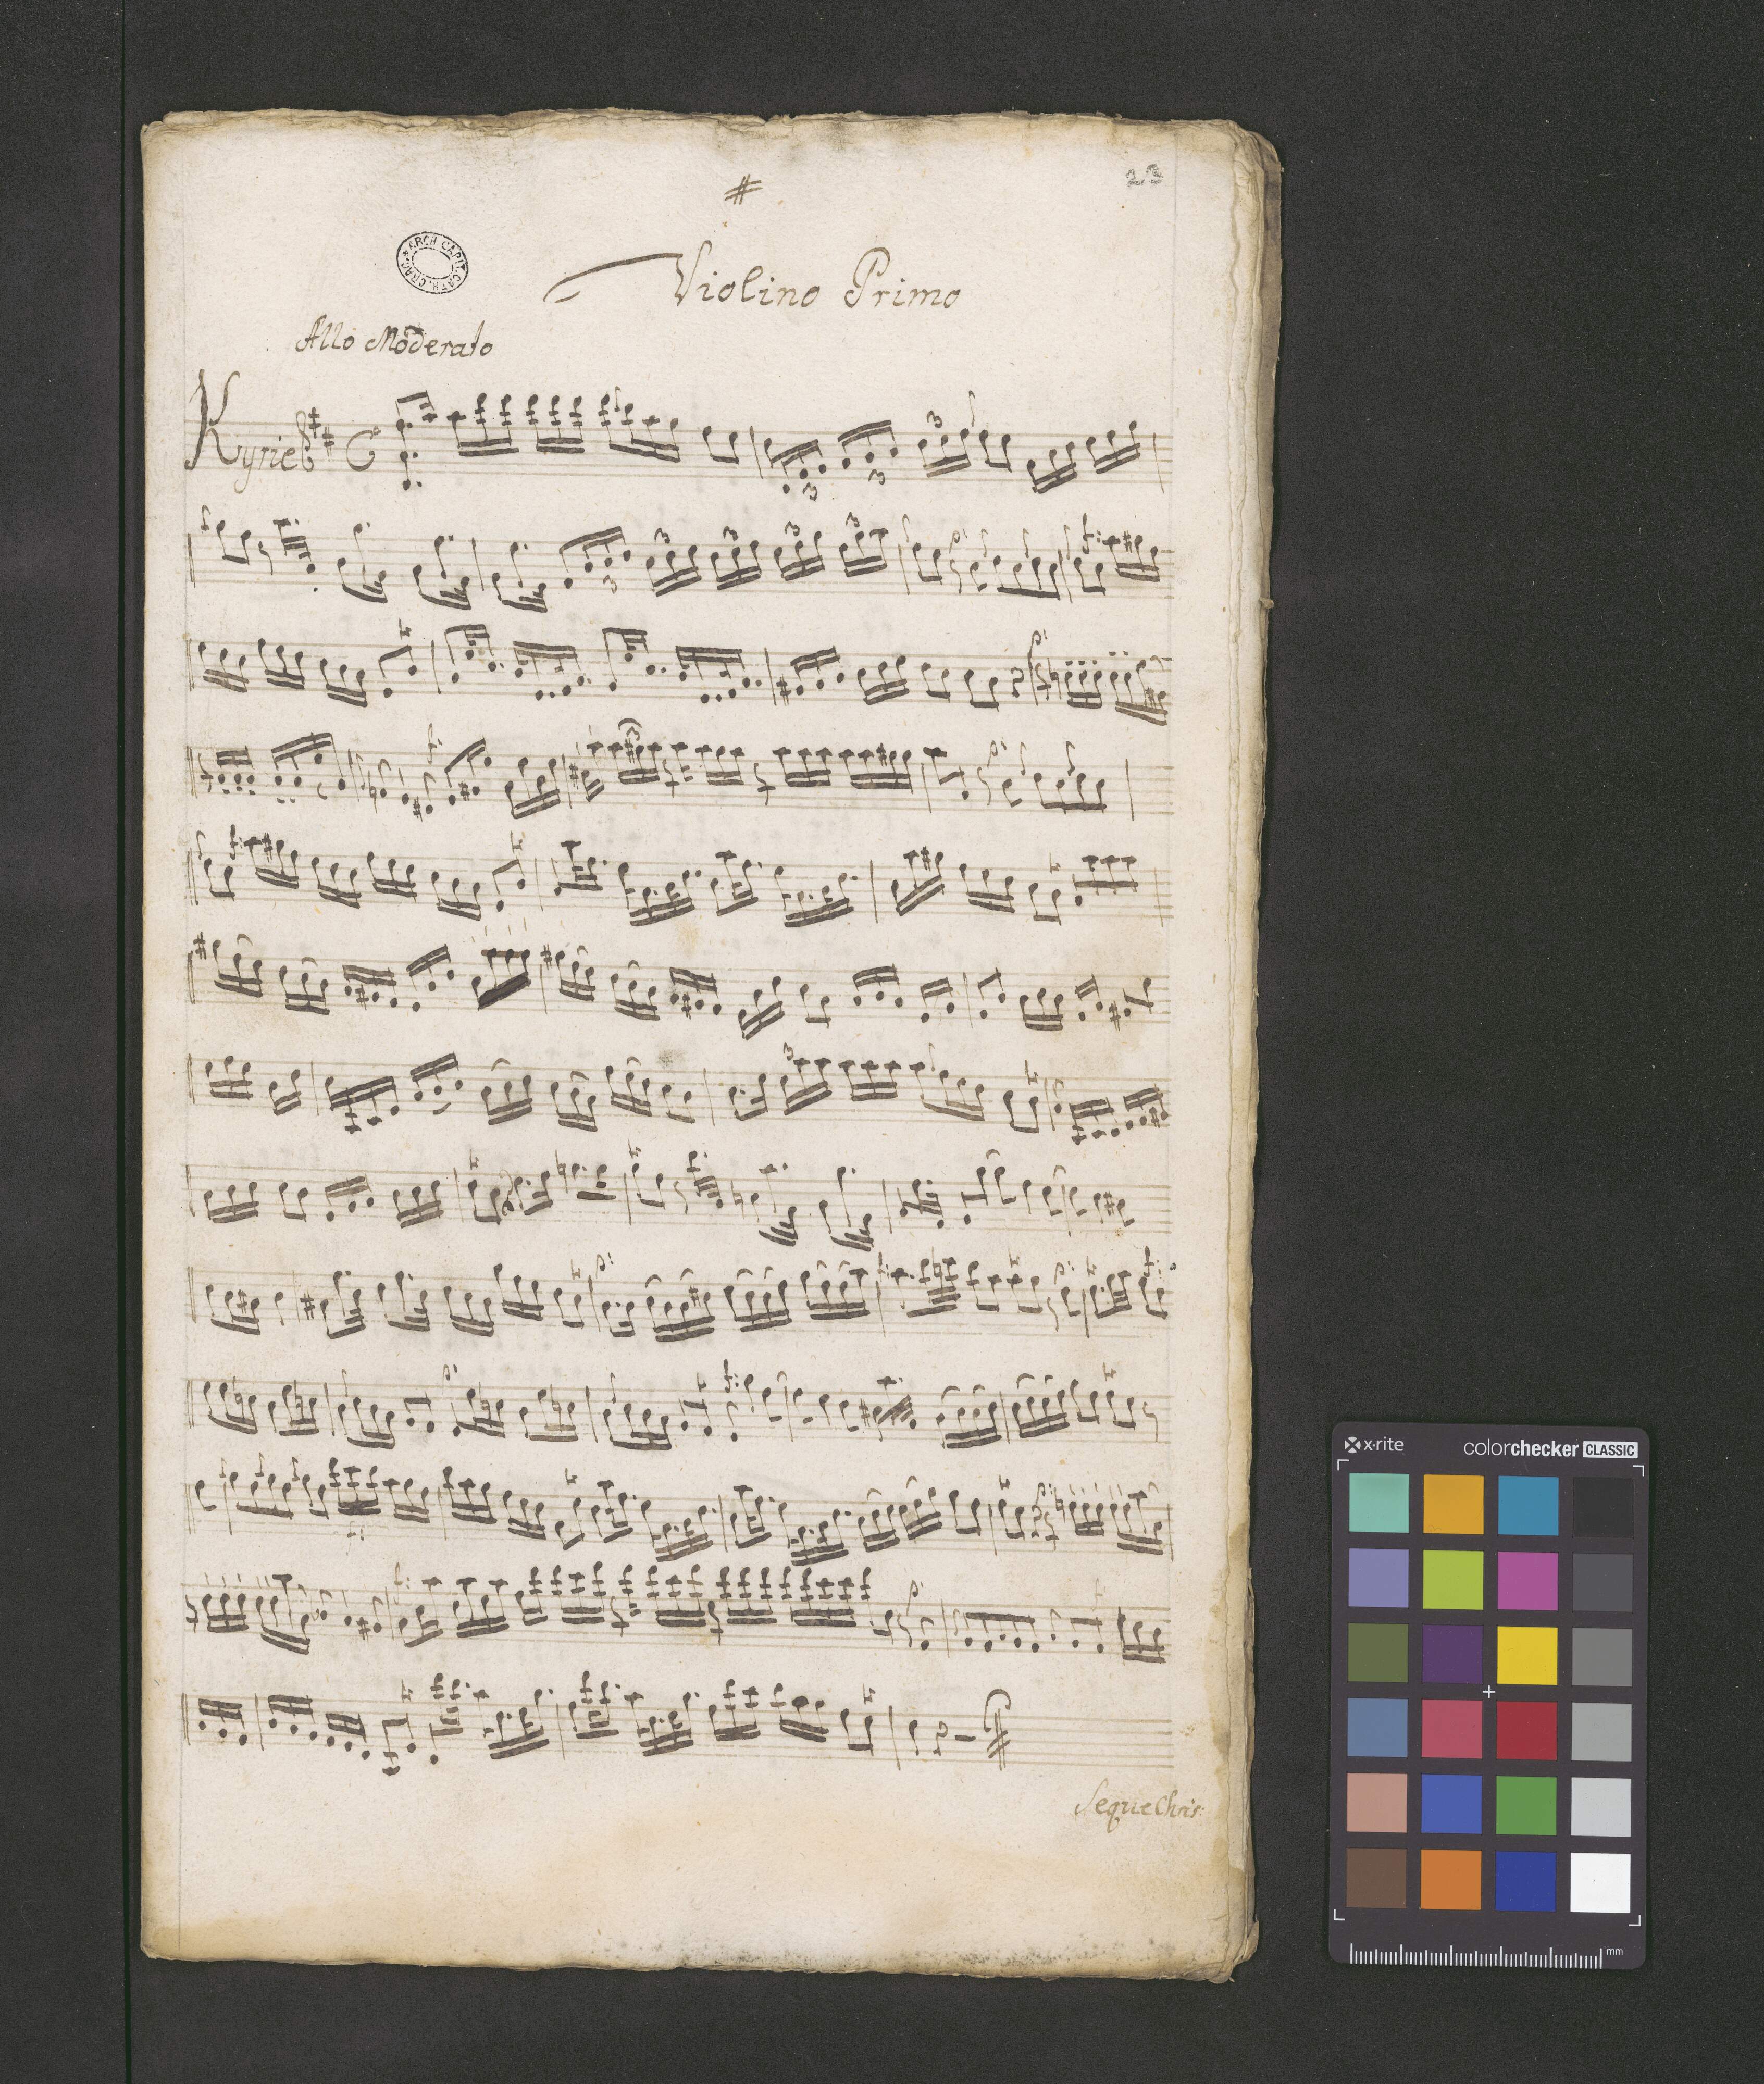 23
#
ARCH. CAPIT. CATH. CRAC.
Violino Primo
Allo Moderato
Kyrie
3 3 3
3 3 3 3 3
3
Seque Chris:
x-rite colorchecker CLASSIC
mm